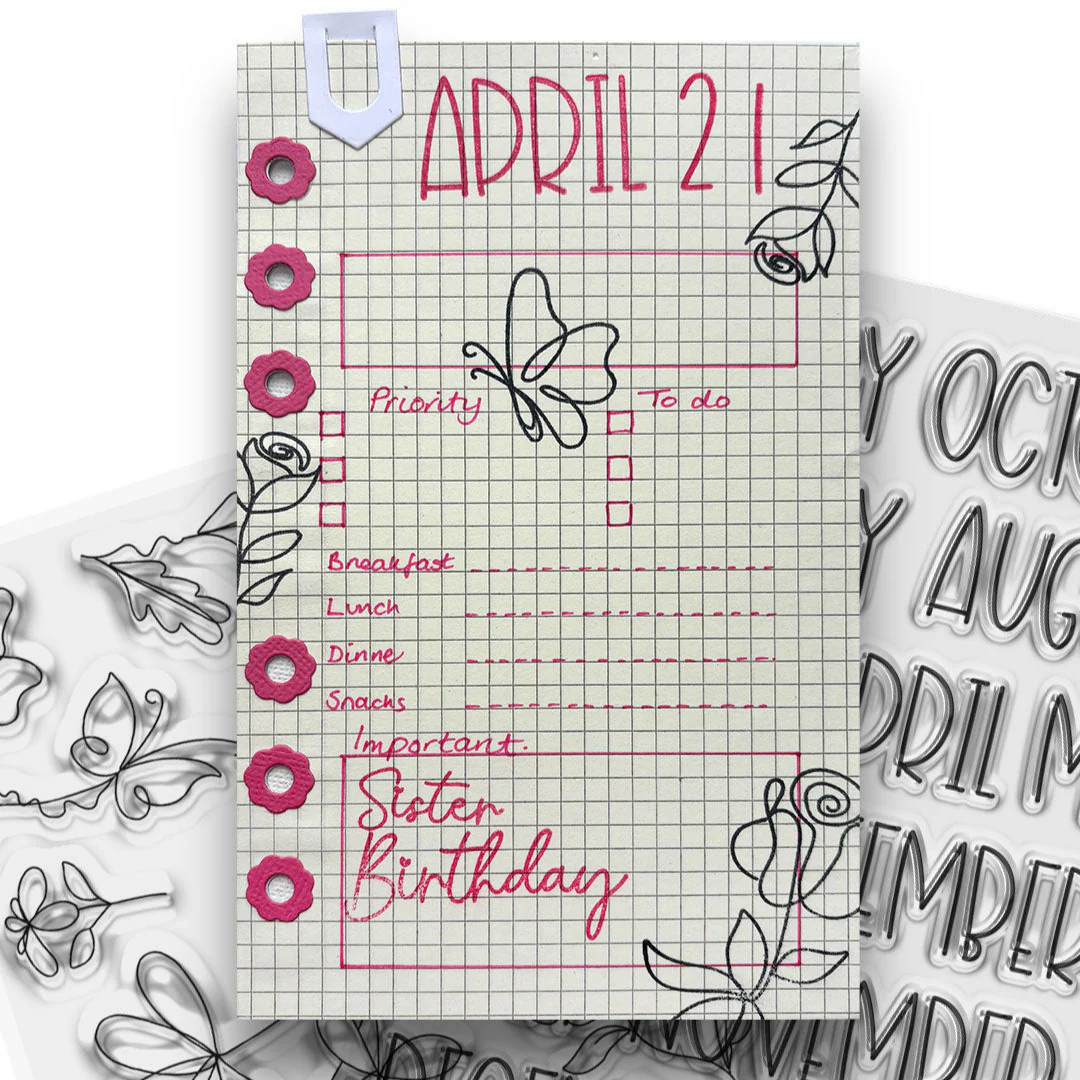 APRIL 21
Priority
To do
Breakfast
Lunch
Dinne
Snacks
Important.
Sister
Birthday
OCT
AUG
PRIL M
EMBER
VEMBER